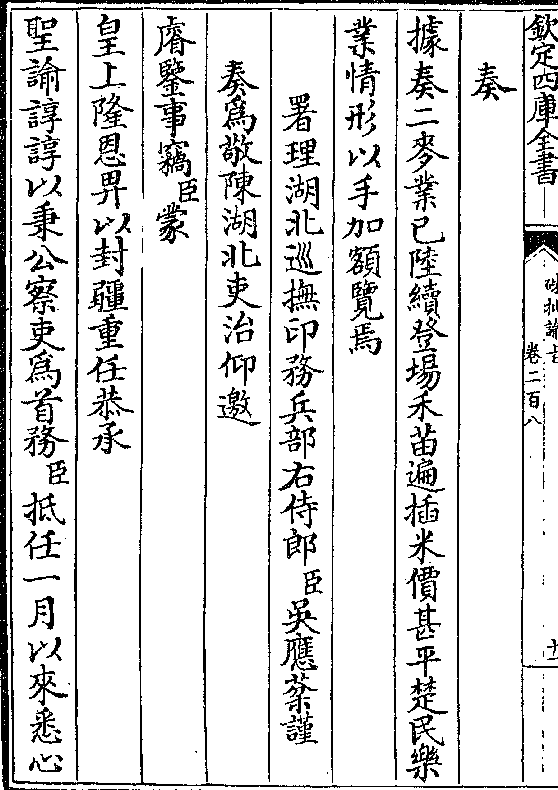 欽定四庫全書
硃批諭旨
卷二百八
奏
據奏二麥業已陸續登場禾苗遍插米價甚平楚民樂
業情形以手加額覽焉
署理湖北巡撫印務兵部右侍郎臣吳應棻謹
奏為敬陳湖北吏治仰邀
睿鑒事竊臣蒙
皇上隆恩畀以封疆重任恭承
聖諭諄諄以秉公察吏為首務臣抵任一月以來悉心